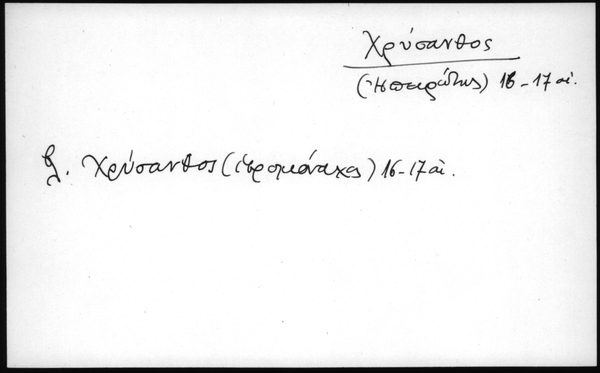 Χρύσανθος
(Ἠπειρώτης) 16-17 αἰ.
βλ. Χρύσανθος (ἱερομόναχος) 16-17 αἰ.